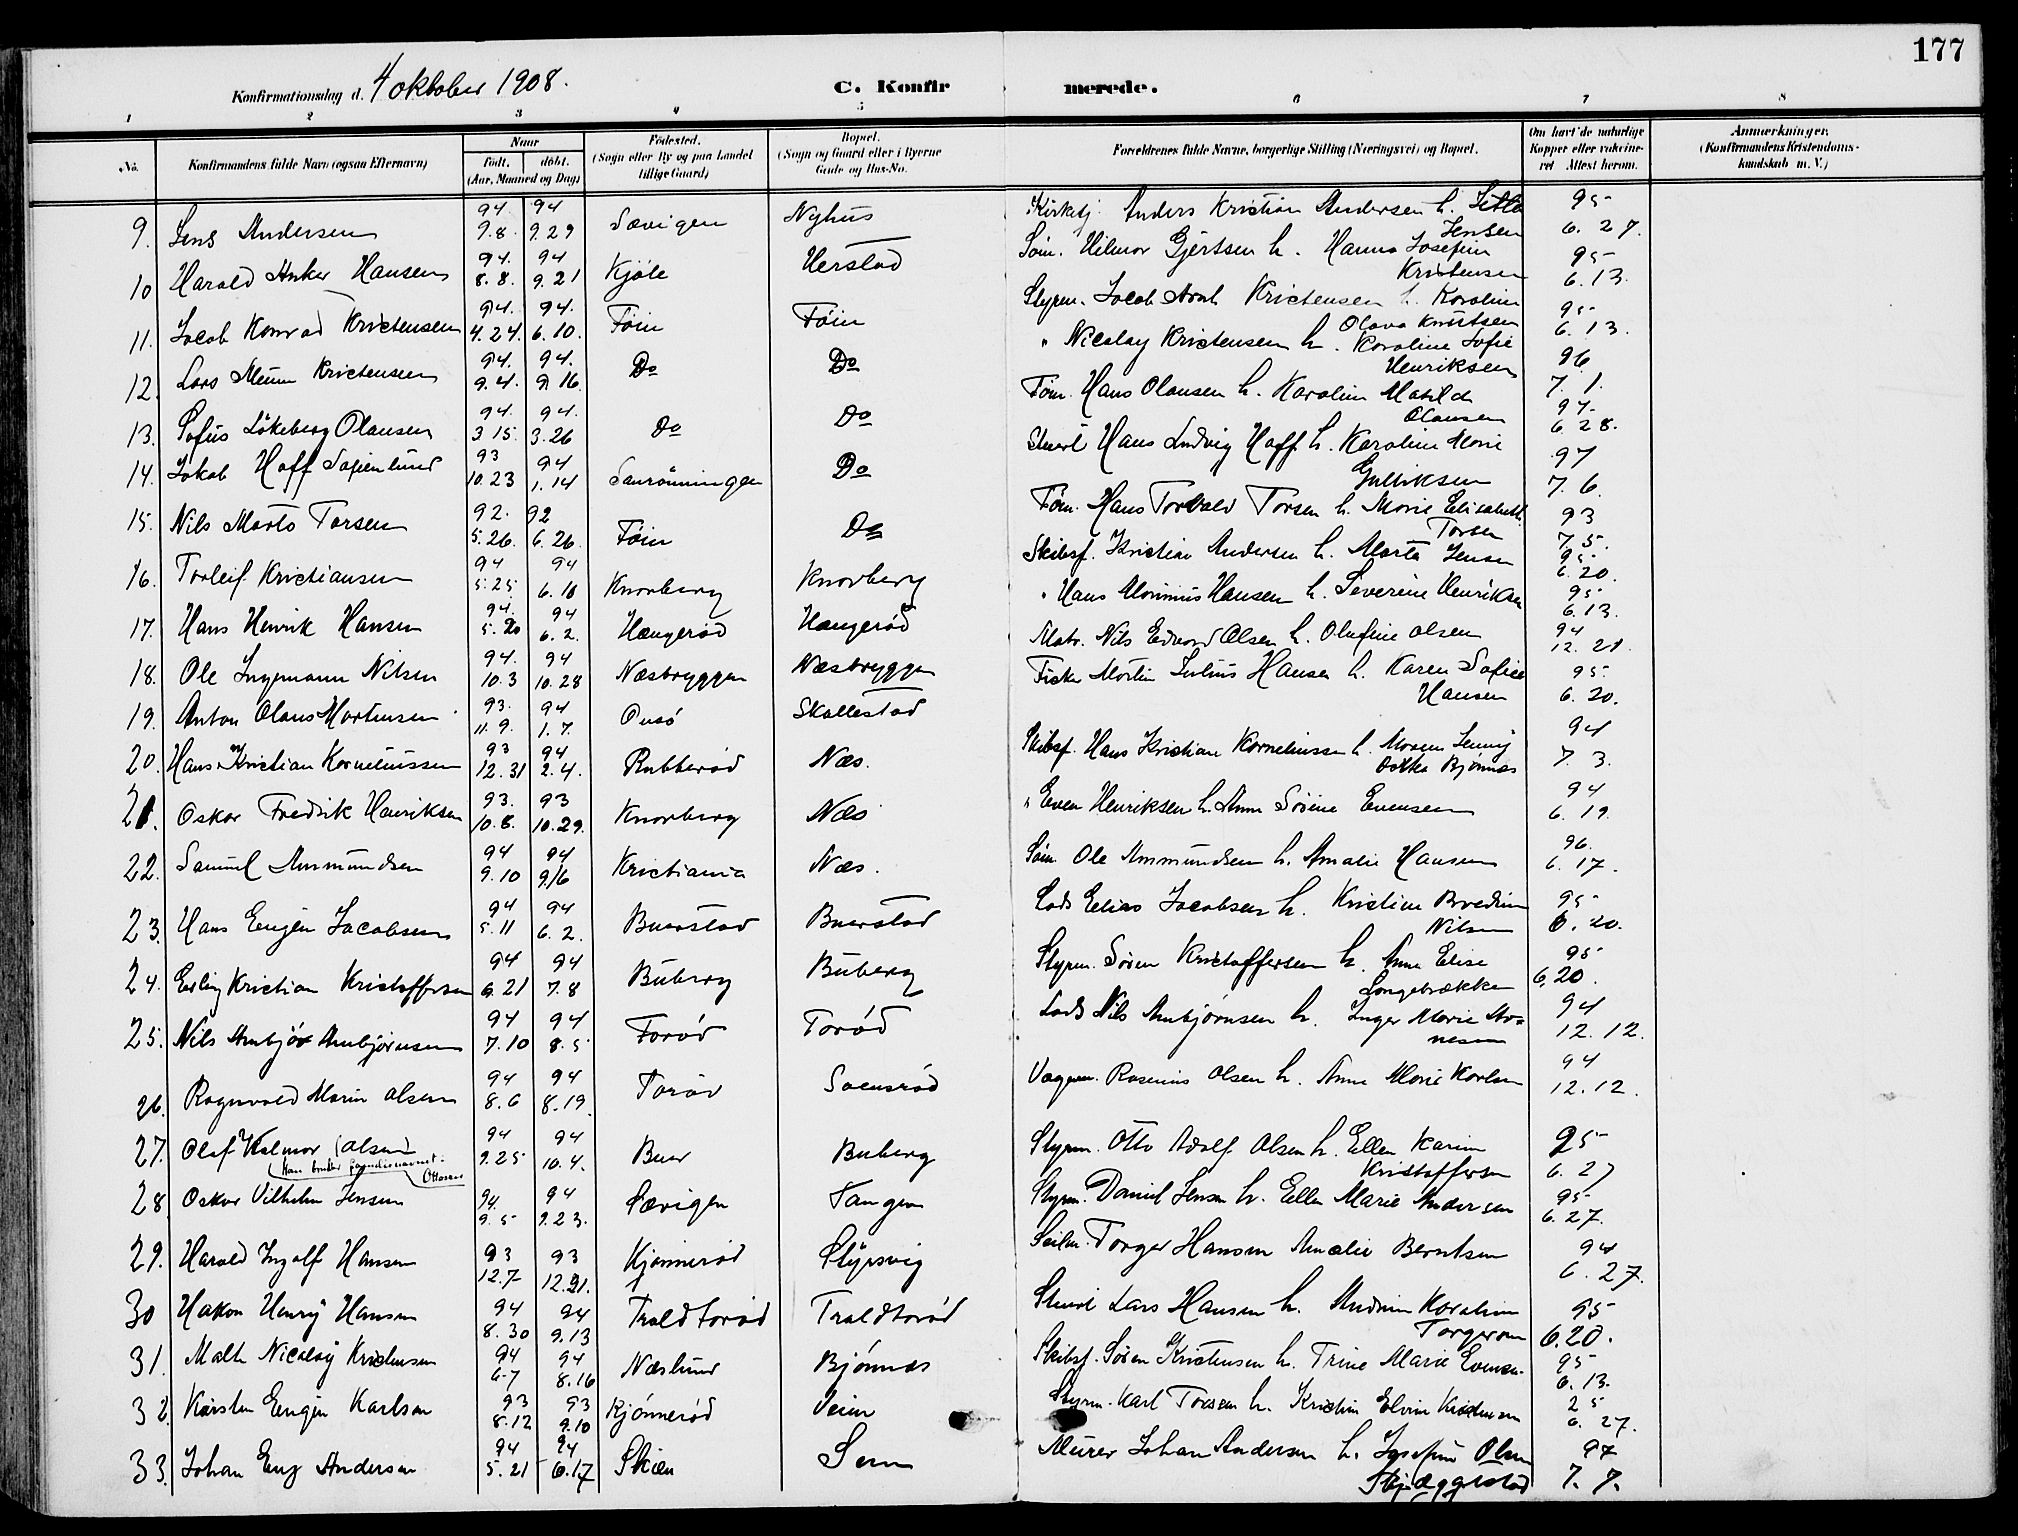 177
Konfirmationsdag d. 4 oktober 1908.
C. Konfirmerede.
1 2 3 4 5 6 7 8
No. | Konfirmandens fulde Navn (ogsaa Efternavn) | Naar født. døbt. (Aar, Maaned og Dag) | Fødested. (Sogn eller By og paa Landet tillige Gaard) | Bopæl. (Sogn og Gaard eller i Byerne Gade og Hus-No. | Forældrenes fulde Navne, borgerlige Stilling (Næringsvei) og Bopæl. | Om havt de naturlige Kopper eller vakcineret Attest herom. | Anmærkninger. (Konfirmandens Kristendomskundskab m. V.)
9. Jens Andersen 94. 9.8. 94 9.29 Sævigen Nyhus Kirketj. Anders Kristian Andersen h. Jensen 95 6.27.
10 Harald Anker Hansen 94. 8.8. 94 9.21 Kjøle Herstad Søm. Hilmar Gjertsen h. Hanna Josefine Kristensen 95 6.13.
11. Jacob Konrad Kristensen 94. 4.24. 94. 6.10. Føin Føin Styrm. Jacob Kristensen h. Karoline Olava Knutsen 95 6.13.
12. Lars Kristensen 94. 9.4. 94. 9.16. Do Do " Nicolay Kristensen h. Karoline Sofie Henriksen 96 7.1.
13. Sofus Løkeberg Olausen 94. 3.15. 94. 3.26 Do Do Tøm. Hans Olausen h. Karoline Matilde Olausen 97. 6.28.
14. Jakob Hoff Sofienlund 93 10.23 94 1.14 Sanrønningen Do Stuert Hans Ludvig Hoff h. Karoline Marie Gulliksen 97 7.6.
15. Nils Torsen 92. 5.26. 92 6.26. Føin Do Tøm. Hans Torvald Torsen h. Marie Elisabeth Torsen 93 7.5.
16. Torleif Kristiansen 94 5.25. 94 6.10 Knarberg Knarberg Skibsf. Kristian Andersen h. Marta Jensen 95 6.20.
17. Hans Henrik Hansen 94. 5.20 94 6.2. Hængerød Hængerød " Hans Hansen h. Severine Henriksen 95 6.13.
18. Ole Ingemann Nilsen 94. 10.3 94 10.28 Næsbryggen Næsbryggen Matr. Nils Edvard Olsen h. Olufine Olsen 94 12.21.
19. Anton Olaus Martinsen 93. 11.9. 94 1.7. Ousø Skallestad Fisker Martin Julius Hansen h. Karen Sofie Hansen 95. 6.20.
20. Hans Kristian Korneliussen 93 12.31 94 2.4. Rubberød Næs. Skibsf. Hans Kristian Korneliussen h. Maren Jenny Bjønnes 94 7.3.
21. Oskar Fredrik Henriksen 93. 10.8. 93 10.29. Knarberg Næs " Even Henriksen h. Anna Sørine Evensen 94 6.19.
22. Samuel Ammundsen 94 9.10 94 9.16 Kristiania Næs. Søm. Ole Ammundsen h. Amalie Hansen 96. 6.17.
23. Hans Eugen Jacobsen 94 5.11 94 6.2. Buerstad Buerstad Lods Elias Jacobsen h. Kristine Nilsen 95 6.20.
24. Erling Kristian Kristoffersen 94 6.21 94 7.8 Buberg Buberg Styrm. Søren Kristoffersen h. Anna Elise Langebrække 95 6.20.
25. Nils Ambjør Ambjørnsen 94 7.10 94 8.5 Torød Torød Lods Nils Ambjørnsen h. Inger Marie Arnesen 94 12.12.
26. Ragnvald Marin Olsen 94 8.6 94 8.19. Torød Soensrød Vogm. Rasmus Olsen h. Anna Marie Karlsen 94 12.12.
27. Olaf Halmar (Olsen) 94 9.25 94 10.4. Buer Buberg Styrm. Otto Adolf Olsen h. Ellen Karine Kristoffersen 95 6.27
(Han bruker familienavnet Ottosen
28. Oskar Vilhelm Jensen 94. 9.5 94 9.23. Sævigen Tangen Styrm. Daniel Jensen h. Ellen Marie Andersen 95 6.27.
29. Harald Ingolf Hansen 93 12.7 93 12.21. Kjønnerød Styrsvig Seilm. Torger Hansen Amalie Berntsen 94 6.27.
30 Hakon Henry Hansen 94 8.30 94 9.13 Traldtorød Traldtorød Stuert Lars Hansen h. Andrine Karoline Torgersen 95 6.20.
31. Malt Nicolay Kristensen 94 6.7 94 8.16 Næslund Bjønnæs Skibsf. Søren Kristensen h. Trine Marie Evensen. 95 6.13.
32. Karsten Eugen Karlsen 93 8.12 93 9.10 Kjønnerød Veien Styrm. Karl Torsen h. Kristine Elvine Kristensen 25 6.27.
33. Johan Eng Andersen 94 5.21 94 6.17 Skien Sem Murer Johan Andersen h. Josefine Olsen Skjæggestad 97 7.7.